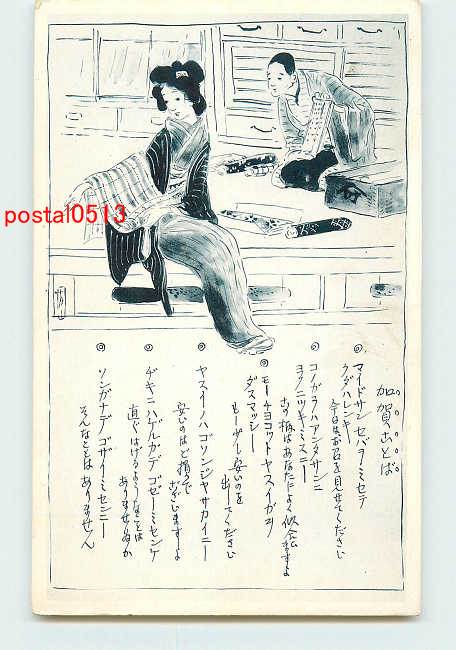 加賀ことば
マイドサン セバヲ ミセテ
クダハレンキー
今日は お召を見せてください
コノガラハアンタサンニ
ヨクニツキャミスニー
この柄はあなたによく似合ますよ
モーチョコット ヤスイガヲ
ダスマッシー
もー少し安いのを
出してください
ヤスイノハゴソンジャサカイニー
安いのはど損で
ございますよ
ヂキニハゲルカテ ゴゼーミセンケ
直ぐはげるようなことは
ありませぬか
ソンガナデ ゴザイーミセンニー
そんなことは ありません
postal0513